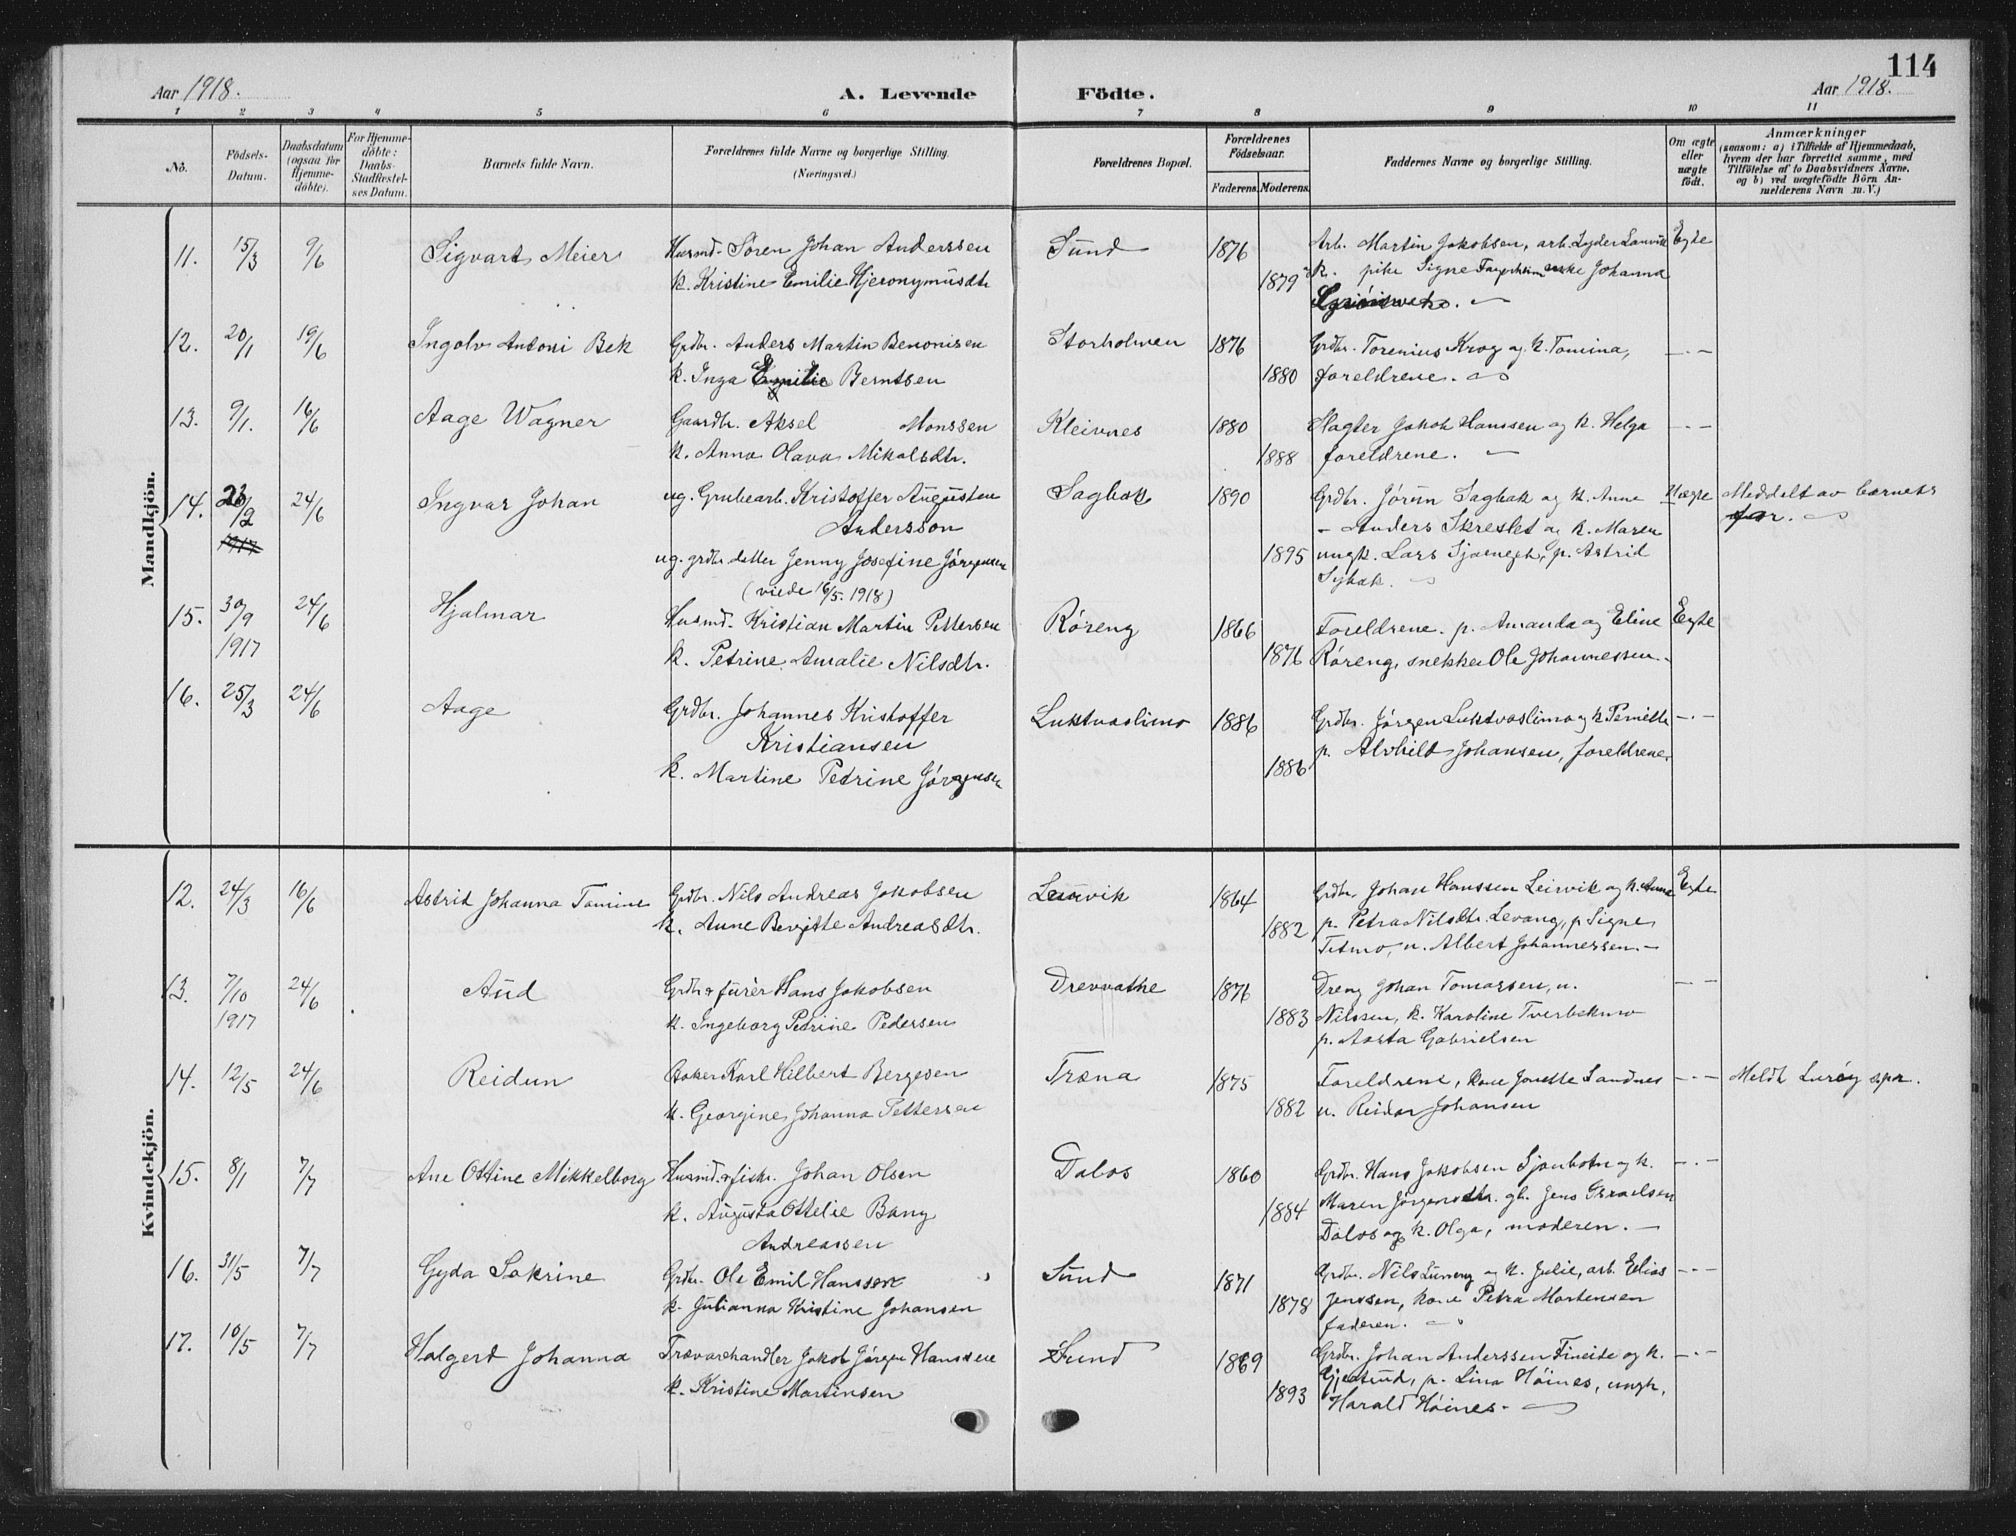 114
Aar 1918.
A. Levende Födte.
Aar 1918.
1 2 3 4 5 6 7 8 9 10 11
No.
Födsels-Datum.
Daabsdatum (ogsaa for Hjemme-döbte).
For Hjemme-döbte: Daabs-Stadfæstel-ses Datum.
Barnets fulde Navn.
Forældrenes fulde Navne og borgerlige Stilling. (Næringsvei.)
Forældrenes Bopæl.
Forældrenes Födselsaar.
Faderens. Moderens.
Faddernes Navne og borgerlige Stilling.
Om ægte eller uægte födt.
Anmærkninger
(saasom: a) i Tilfælde af Hjemmedaab, hvem der har forrettet samme, med Tilföielse af to Daabsvidners Navne, og b) ved uægtefödte Börn An-melderens Navn m.V.)
Mandkjön.
11. 15/3 9/6 Sigvart Meier Husmd. Søren Johan Anderssen Sund 1876 Arb. Martin Jakobsen, arb. Lyder Egte
k. Kristine Emilie Hjeronymusdtr 1879 k. pike Signe Johanna
12. 20/1 19/6 Ingolv Antoni Bek Grdbr. Anders Martin Benonisen Storholmen 1876 Grdbr. Torenius Krog og k. Tomina, —·—
k. Inga Emilie Berntsen 1880 foreldrene.
13. 9/1. 16/6 Aage Wagner Gaardbr. Aksel Monssen Kleivnes 1880 Slagter Jakob Hanssen og k. Helga —·—
k. Anna Olava Mikalsdtr. 1888 foreldrene.
14. 23/2 24/6 Ingvar Johan ug. Grubearb. Kristoffer Augustin Sagbak 1890 Grdbr. Jørun Sagbak og k. Anne Uægte Meddelt av barnets
1917 Andersson — Anders Skreslet og k. Maren far.
ug. grdbr datter Jenny Josefine Jørgensen 1895 ungk. Lars p. Astrid
(viede 16/5. 1918)
15. 30/9 24/6 Hjalmar Husmd. Kristian Martin Pettersen Røreng 1866 Foreldrene. p. Amanda og Eline Egte
1917 k. Petrine Amalie Nilsdtr. 1876 Røreng, snekker Ole Johannessen.
16. 25/3 24/6 Aage Grdbr. Johannes Kristoffer Luktvaslimo 1886 Grdbr. Jørgen Luktvaslimo og k Pernille —·—
Kristiansen p. Alvhild Johansen, foreldrene.
k. Martine Petrine Jørgensen 1886
Kvindekjön.
12. 24/3 16/6 Astrid Johanna Tomine Grdbr. Nils Andreas Jakobsen Leirvik 1864 Grdbr. Johan Hanssen Leirvik og k. Anna Egte
k. Anne Bergitte Andreasdtr. 1882 p. Petra Nilsdtr. Levang, p Signe
Titmo, u. Albert Johannessen.—
13. 7/10 24/6 Aud Grdbr & furer Hans Jakobsen Drevvatne 1876 Dreng Johan Tomassen, u. —·—
1917 k. Ingeborg Petrine Pedersen 1883 Nilssen, k. Karoline Tverbakmo
p. Aasta Gabrielsen
14. 12/5 24/6 Reidun Karl Hilbert Bergesen Træna 1875 Foreldrene, kone Jonette Sandnes —·— Meldt Lurøy spr.
k. Georgine Johanna Pettersen 1882 u. Reidar Johansen
15. 8/1 7/7 Ane Ottine Mikkelborg Husmd. & fisk. Johan Olsen Dalos 1860 Grdbr. Hans Jakobsen Sjonbotn og k. —·—
k. Augusta Ottelie Bang 1884 Maren Jørgensdtr. gb. Jens Israelsen
Andreassen Dalos og k. Olga, moderen.—
16. 31/5 7/7 Gyda Sakrine Grdbr. Ole Emil Hanssen Sund 1871 Grdbr. Nils og k. Julie, arb. Elias —·—
k. Julianna Kristine Johansen 1878 Jenssen, kone Petra Mortensen
faderen.
17. 10/5 7/7 Halgerd Johanna Trævarehandler Jakob Jørgen Hanssen Sund 1869 Grdbr. Johan Anderssen Fineide og k. —·—
k. Kristine Martinsen 1893 Gjertrud, p. Lina Høines, ungk.
Harald Høines.